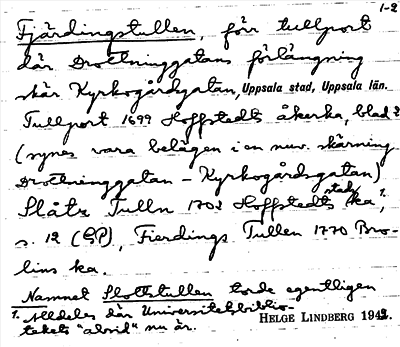 1-2
Fjärdingstullen, förr tullport
där Drottninggatans förlängning
skär Kyrkogårdsgatan, Uppsala stad, Uppsala län.
Tullport 1699 Hoffstedts åkerka, blad 2
(synes vara belägen i en nuv. skärning
Drottninggatan – Kyrkogårdsgatan)
Slåts Tulln 1702 Hoffstedts stads ka 1,
s. 12 (GP), Fierdings Tullen 1770 Bro-
lins ka.
Namnet Slottstullen torde egentligen
1. Alldeles där Universitetsbiblio-
tekets "alvid" nu är.
HELGE LINDBERG 1942.